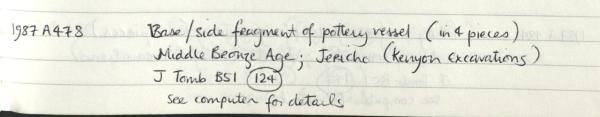 1987 A478 Base/side fragment of pottery vessel (in 4 pieces)
Middle Bronze Age; Jericho (Kenyon Excavations)
J Tomb B51 (124)
See computer for details